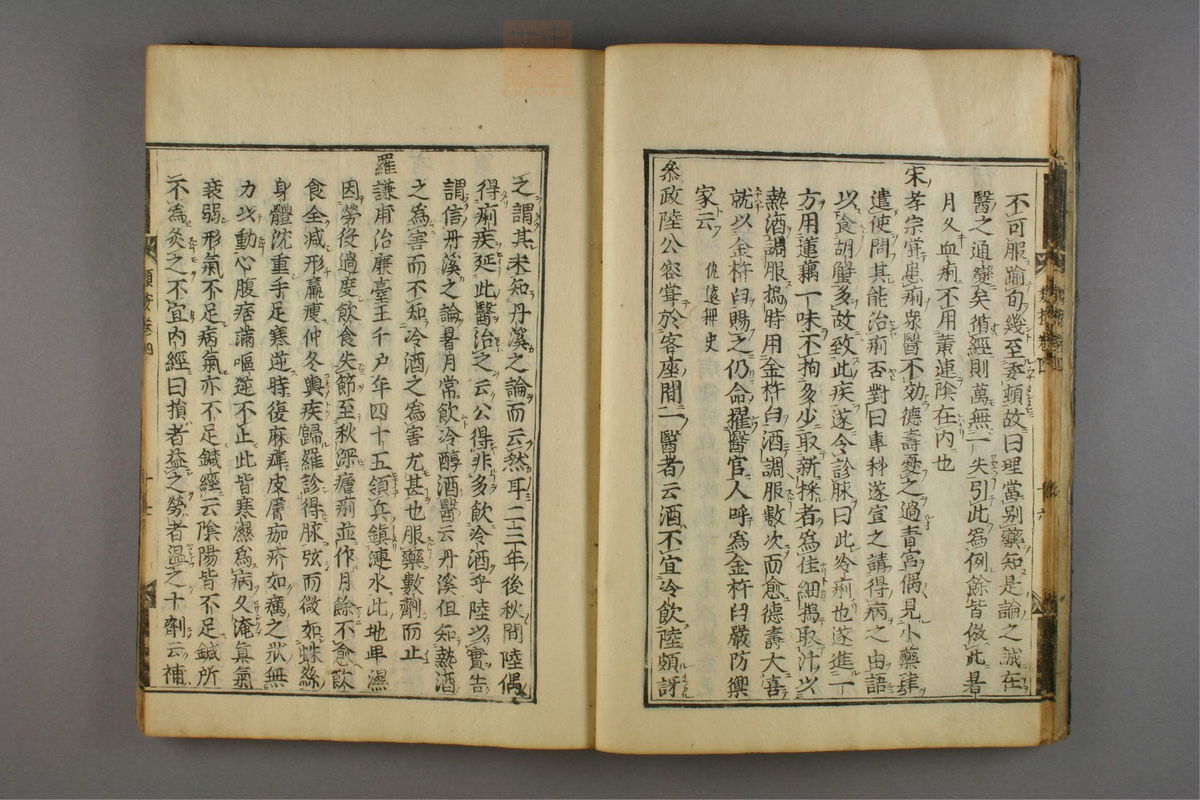 不可服踰旬幾至委頓故曰理當别藥知是論之誠在
醫之通變矣循經則萬無一失引此爲例餘皆倣此暑
月久血痢不用黄連陰在内也
宋孝宗嘗患痢衆醫不効德壽憂之過青宮偶見小藥肆
遣使問其能治痢否對曰專科遂宣之請得病之由語
以食胡蟹多故致此疾遂令診脉曰此冷痢也遂進一
方用蓮藕一味不拘多少取新採者爲佳細搗取汁以
熱酒調服搗時用金杵臼酒調服數次而愈德壽大喜
就以金杵臼賜之仍命擢醫官人呼為金杵臼嚴防禦
家云
叅政陸公容嘗於客座間一醫者云酒不宜冷飲陸頗訝
之謂其未知丹溪之論而云然耳二三年後秋間陸偶
得痢疾延此醫治之云公得非多飲冷酒乎陸以實告
謂信丹溪之論暑月常飲冷醇酒醫云丹溪但知熱酒
之為害而不知冷酒之為害尤甚也服藥數劑而止
羅謙甫治廉臺王千户年四十五領兵鎮漣水此地卑濕
因勞役過度飲食失節至秋深瘧痢並作月餘不愈飲
食全减形羸瘦仲冬輿疾歸羅診得脉弦而微如蛛絲
身體沈重手足寒逆時復麻痺皮膚痂疥如癘之狀無
力以動心腹痞滿嘔逆不止此皆寒濕為病久淹真氣
衰弱形氣不足病氣亦不足鍼經云陰陽皆不足鍼所
不為灸之不宜内經曰損者益之勞者温之十劑云補